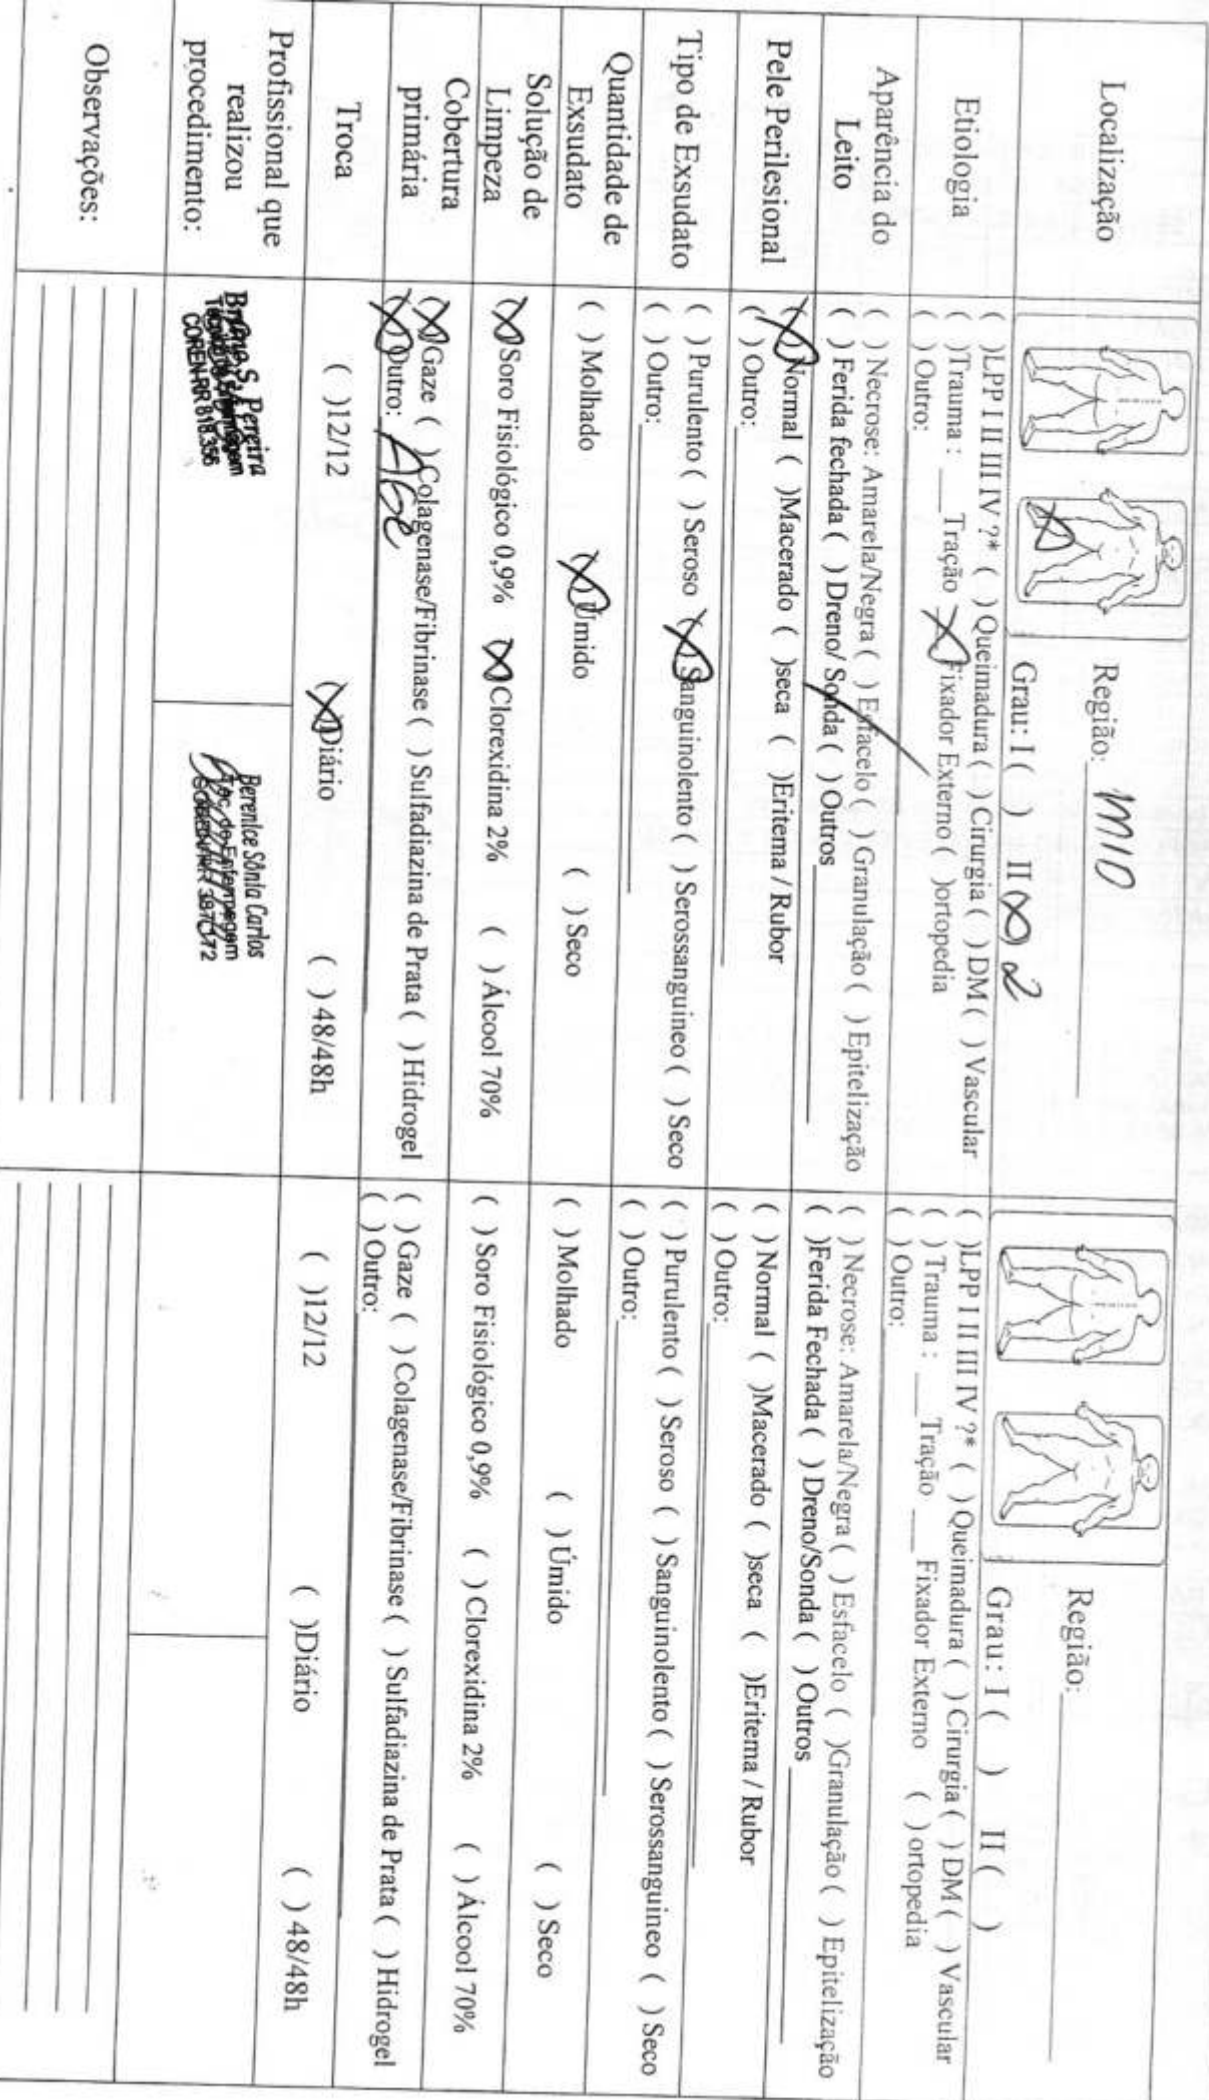 Localização
Região: MIO
Grau: I ( ) II (X) 2
Região:
Grau: I ( ) II ( )
Etiologia
( )LPP I II III IV ?* ( )Queimadura ( )Cirurgia ( ) DM ( ) Vascular
( )Trauma : __Tração X Fixador Externo ( )ortopedia
( ) Outro:
( )LPP I II III IV ?* ( )Queimadura ( )Cirurgia ( ) DM ( ) Vascular
( ) Trauma : ___Tração ___ Fixador Externo ( ) ortopedia
( ) Outro:
Aparência do
Leito
( ) Necrose: Amarela/Negra ( ) Esfacelo ( ) Granulação ( ) Epitelização
( ) Ferida fechada ( ) Dreno/ Sonda ( ) Outros
( ) Necrose: Amarela/Negra ( ) Esfacelo ( )Granulação ( ) Epitelização
( )Ferida Fechada ( ) Dreno/Sonda ( ) Outros
Pele Perilesional
(X) Normal ( )Macerado ( )seca ( )Eritema / Rubor
( ) Outro:
( ) Normal ( )Macerado ( )seca ( )Eritema / Rubor
( ) Outro:
Tipo de Exsudato
( ) Purulento ( ) Seroso (X) Sanguinolento ( ) Serossanguineo ( ) Seco
( ) Outro:
( ) Purulento ( ) Seroso ( ) Sanguinolento ( ) Serossanguineo ( ) Seco
( ) Outro:
Quantidade de
Exsudato
( ) Molhado (X) Úmido ( ) Seco
( ) Molhado ( ) Úmido ( ) Seco
Solução de
Limpeza
(X) Soro Fisiológico 0,9% (X) Clorexidina 2% ( ) Álcool 70%
( ) Soro Fisiológico 0,9% ( ) Clorexidina 2% ( ) Álcool 70%
Cobertura
primária
(X) Gaze ( )Colagenase/Fibrinase ( ) Sulfadiazina de Prata ( ) Hidrogel
(X) Outro: AGE
( ) Gaze ( ) Colagenase/Fibrinase ( ) Sulfadiazina de Prata ( ) Hidrogel
( ) Outro:
Troca
( )12/12 (X)Diário ( ) 48/48h
( )12/12 ( )Diário ( ) 48/48h
Profissional que
realizou
procedimento:
S. Pereira
COREN-RR
Berenice Sônia Carlos
Téc. de Enfermagem
Observações: